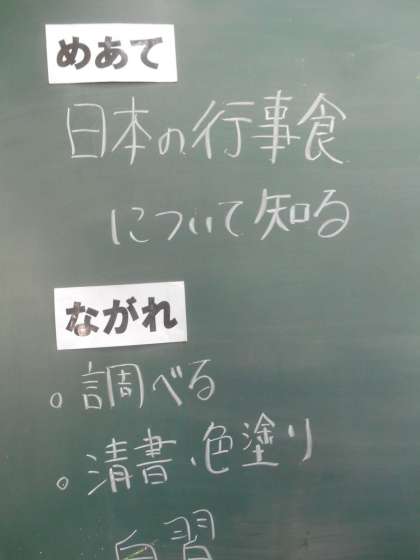 めあて
日本の行事食
について知る
ながれ
。調べる
。清書、色塗り
自習